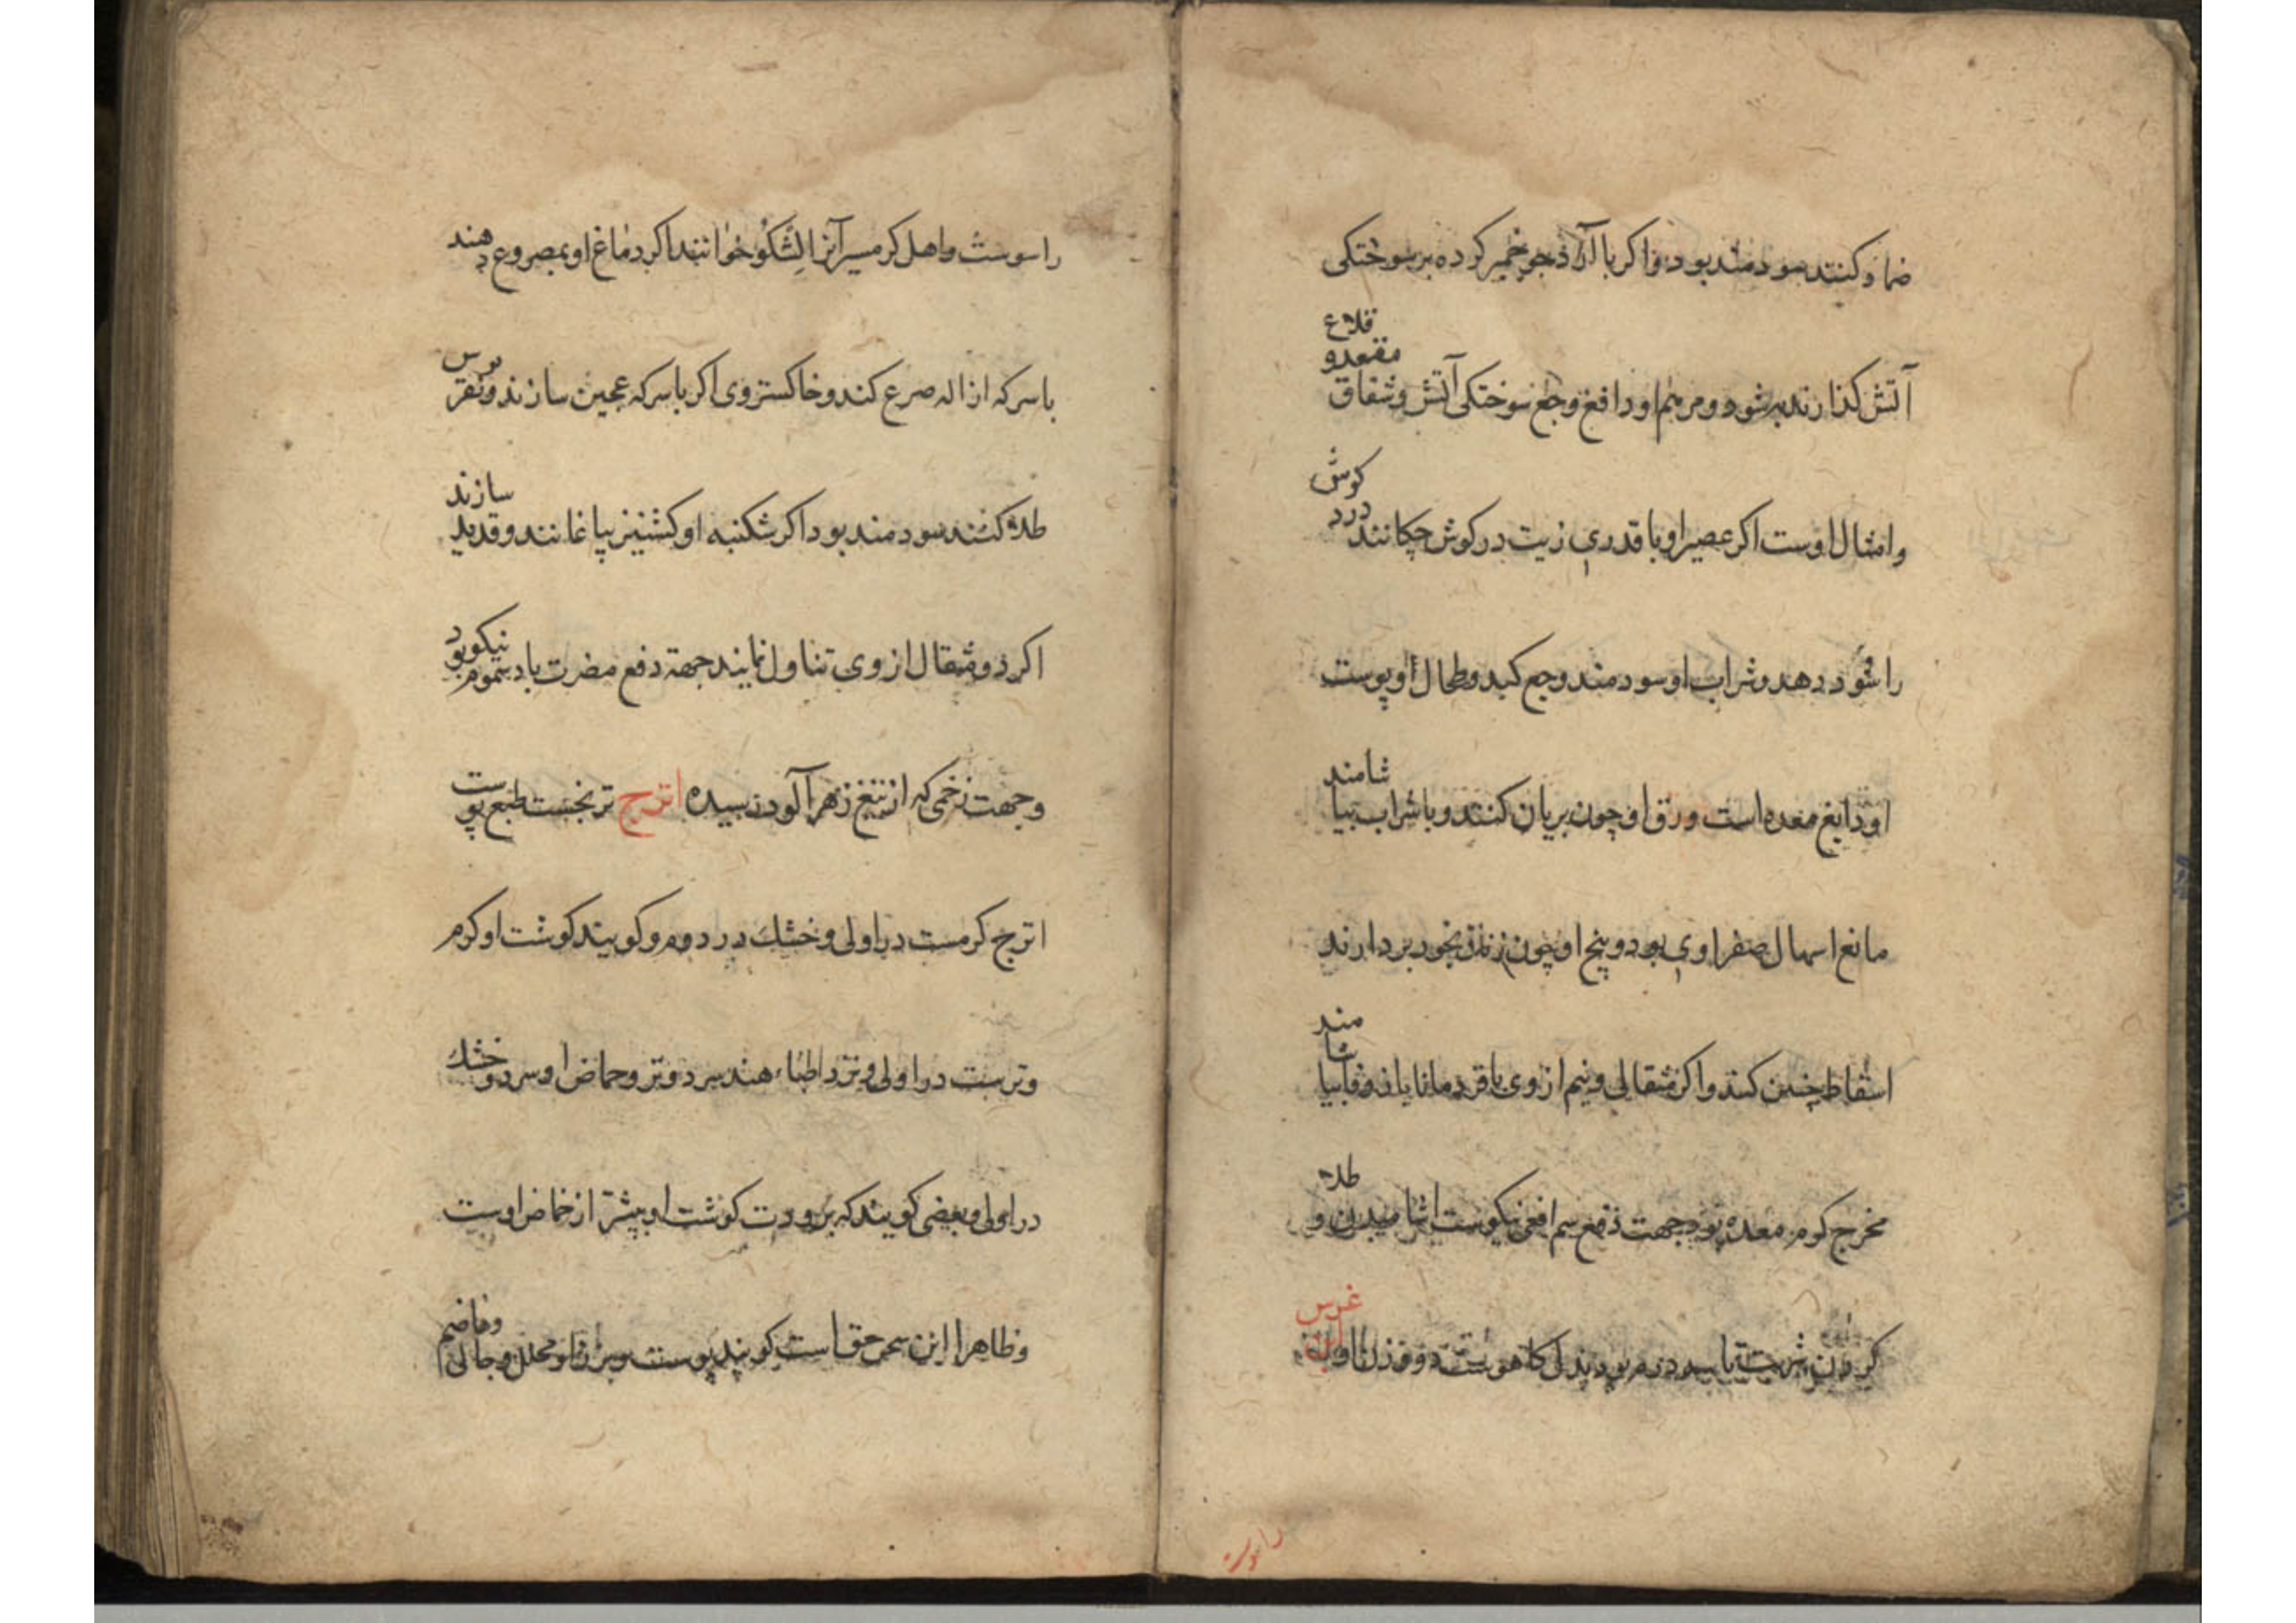 ضماد کنند سودمند بود و اکر با آرد جو خمیر کرده بر سوختکی
آتش کذارند به شود و مرهم او دافع وجع سوختکی آتش و شقاق مقعد و قلاع
و امثال اوست اکر عصیر او با قدری زیت در کوش چکانند درد کوش
را سود دهد و شراب او سودمند وجع کبد و طحال او پوست
او دابغ معده است ورق او چون بریان کنند و با شراب بیاشامند
مانع اسهال صفراوی بود و بیخ او چون زنان بخود بردارند
اسقاط جنین کند و اکر مثقالی و نیم از وی با قردمانا یا زوفا بیاشامند
مخرج کرم معده بود جهت دفع سم افعی نیکوست اشامیدن و طلاء
کردن شربت تا سه درم بود بدل کاهو است دو وزن او ابن عرس
راسوست
راسوست و اهل کرمسیر آنرا لشکو خوانند اکر دماغ او بمصروع دهند
با سرکه ازاله صرع کند و خاکستر وی اکر با سرکه عجین سازند و نقرس
طلاء کنند سودمند بود اکر شکنبه او کشنیز بیاغانند و قدید سازند
اکر دو مثقال از وی تناول نمایند جهة دفع مضرت باد سموم نیکو بود
و جهت زخمی که از تیغ زهر آلود رسیده اترج ترنجست طبع پوست
اترج کرمست در اولی و خشک در دوم و کویند کوشت او کرم
و ترست در اولی و نزد اطباء هند سرد و تر و حماض او سرد و خشک
در اولی و بعضی کویند که برودت کوشت او بیشتر از حماض اوست
و ظاهرا این سخن حق است کویند پوست و بزر او محلل و جالی و هاضم